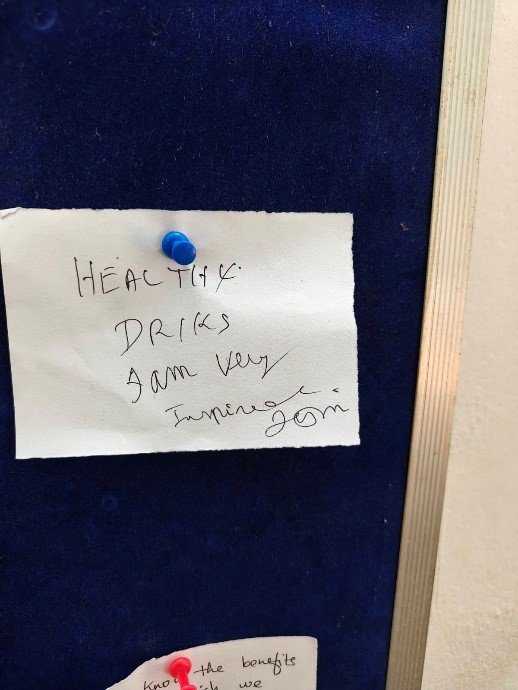 HEALTHY.
DRIKS
I am very
Inspired.
the benefits
we